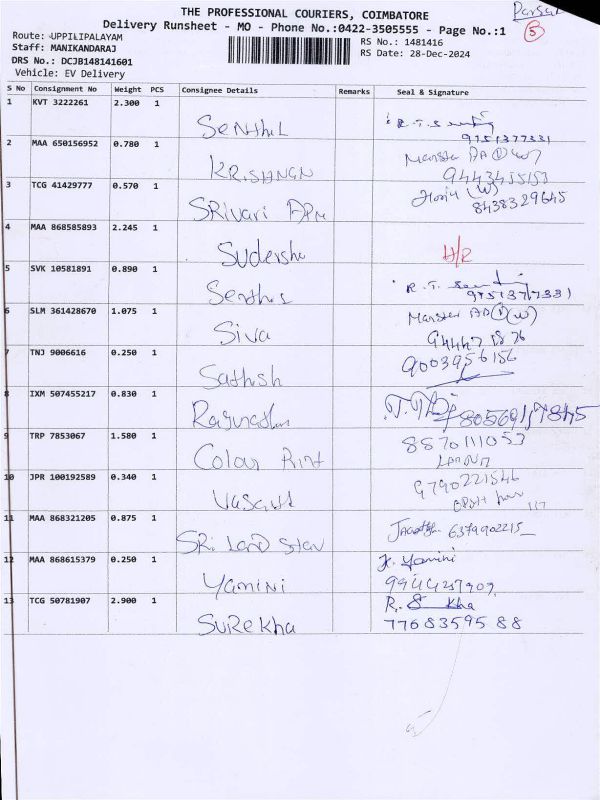 THE PROFESSIONAL COURIERS, COIMBATORE
Parsal
Delivery Runsheet - MO - Phone No.:0422-3505555 - Page No.:1
5
Route: UPPILIPALAYAM
RS No.: 1481416
Staff: MANIKANDARAJ
RS Date: 28-Dec-2024
DRS No.: DCJB148141601
Vehicle: EV Delivery
S No Consignment No Weight PCS Consignee Details Remarks Seal & Signature
1 KVT 3222261 2.300 1 Senthil R.T.S
9751377331
2 MAA 650156952 0.780 1 KRISHNAN
3 TCG 41429777 0.570 1 SRivari
8438329645
4 MAA 868585893 2.245 1 Sudersha
5 SVK 10581891 0.890 1 Senthil R.T.
6 SLM 361428670 1.075 1 Siva
7 TNJ 9006616 0.250 1 Sathish 9003956156
8 IXM 507455217 0.830 1 Ragunathan
9 TRP 7853067 1.580 1 Colour Print 8870111053
10 JPR 100192589 0.340 1 Vasant 9790221546
11 MAA 868321205 0.875 1 SRi Land Star 6379902215
12 MAA 868615379 0.250 1 Yamini Yamini
13 TCG 50781907 2.900 1 SuReKha
7768359588